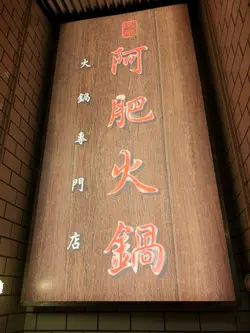 阿肥火鍋
火鍋專門店